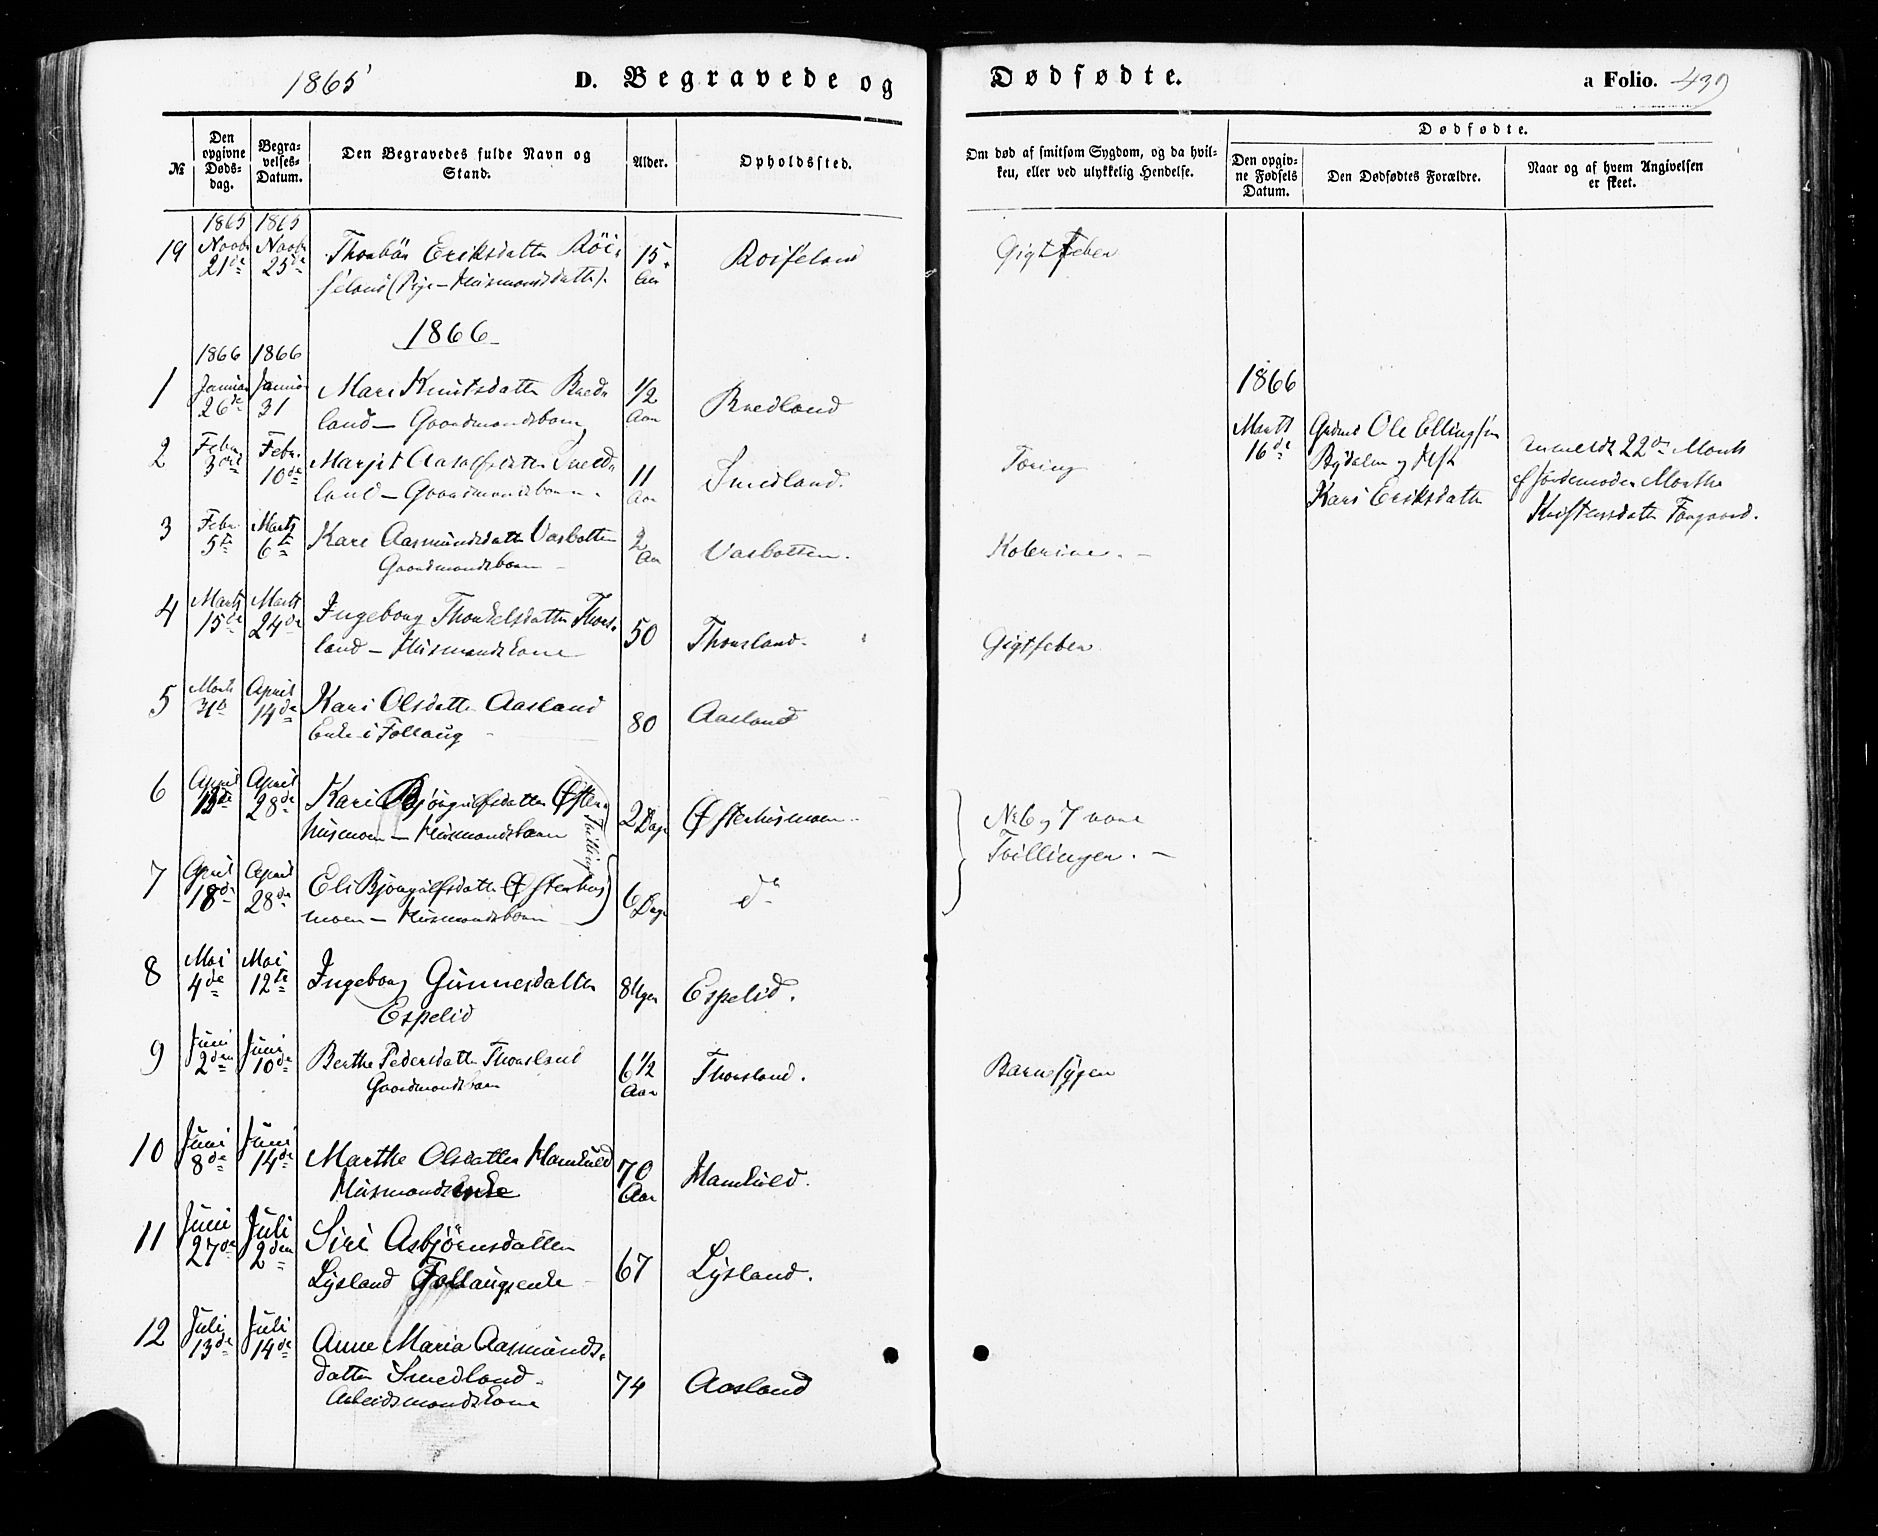 1865
D. Begravede og
Dødfødte.
a Folio. 439
№
Den opgivne Døds-dag.
Begra-velses-Datum.
Den Begravedes fulde Navn og
Stand.
Alder.
Opholdssted.
Om død af smitsom Sygdom, og da hvil-
ken, eller ved ulykkelig Hendelse.
Dødfødte.
Den opgiv-
ne Fødsels
Datum.
Den Dødfødtes Forældre.
Naar og af hvem Angivelsen
er skeet.
1865 1865
19 Novbr 21de Novbr 25de Thorbør Eriksdatter Röi-
seland (Pige - Husmandsdatter). 15 Aar Roiseland Gigtfeber
1866
1866 1866
1 Januar 26de Januar 31 Mari Knutsdatter Bred-
land - Gaardmandsbarn 1/2 Aar Bredland
2 Febr. 3die Febr. 10de Marjit Aasulfsdatter Smed-
land - Gaardmandsbarn. 11 Aar Smedland. Tæring
1866
Marts 16de
Gmd Ole Ellingsen
Bydalen og Hst
Kari Eriksdatter
anmeldt 22de Marts
af Jordemoder Marthe
Kristensdatter Forgaard.
3 Febr. 5te Marts 6te Kari Aasmundsdatter Vasbotten
Gaardmandsbarn 2 Aar Vasbotten. Kolerine. -
4 Marts 15de Marts 24de Ingeborg Thorkelsdatter Thors-
land - Husmandskone 50 Thorsland. Gigtfeber
5 Marts 31te April 14de Kari Olsdatter Aasland
Enke i Follaug 80 Aasland
6 April 13de April 28de Kari Bjørgulfsdatter Øster-
husmoen - Husmandsbarn 2 Dage Østerhusmoen
Tvillinger
No 6 og 7 vare
Tvillinger. -
7 April 18de April 28de Eli Bjørgulfsdatter Østerhus
moen - Husmandsbarn 6 Dage do
8 Mai 4de Mai 12te Ingeborg Gunnesdatter
Espelid 8 Uger Espelid.
9 Juni 2den Juni 10de Berthe Pedersdatter Thorsland
Gaardmandsbarn 6 1/2 Aar Thorsland. Barnesygen
10 Juni 8de Juni 14de Marthe Olsdatter Hamkuld
Husmandsenke 70 Aar Hamkuld.
11 Juni 27de Juli 2den Siri Asbjörnsdatter
Lysland Follaugsenke 67 Lysland.
12 Juli 13de Juli 14de Anne Maria Aasmunds-
datter Smedland.
Arbeidsmandskone 74 Aasland